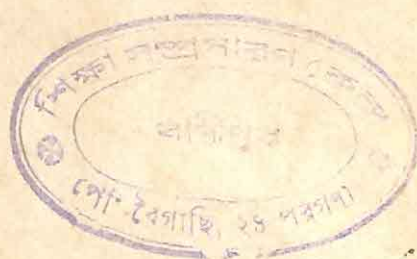 শিক্ষা সম্প্রসারণ কেন্দ্র
পোঃ বৈগাছি, ২৪ পরগণা